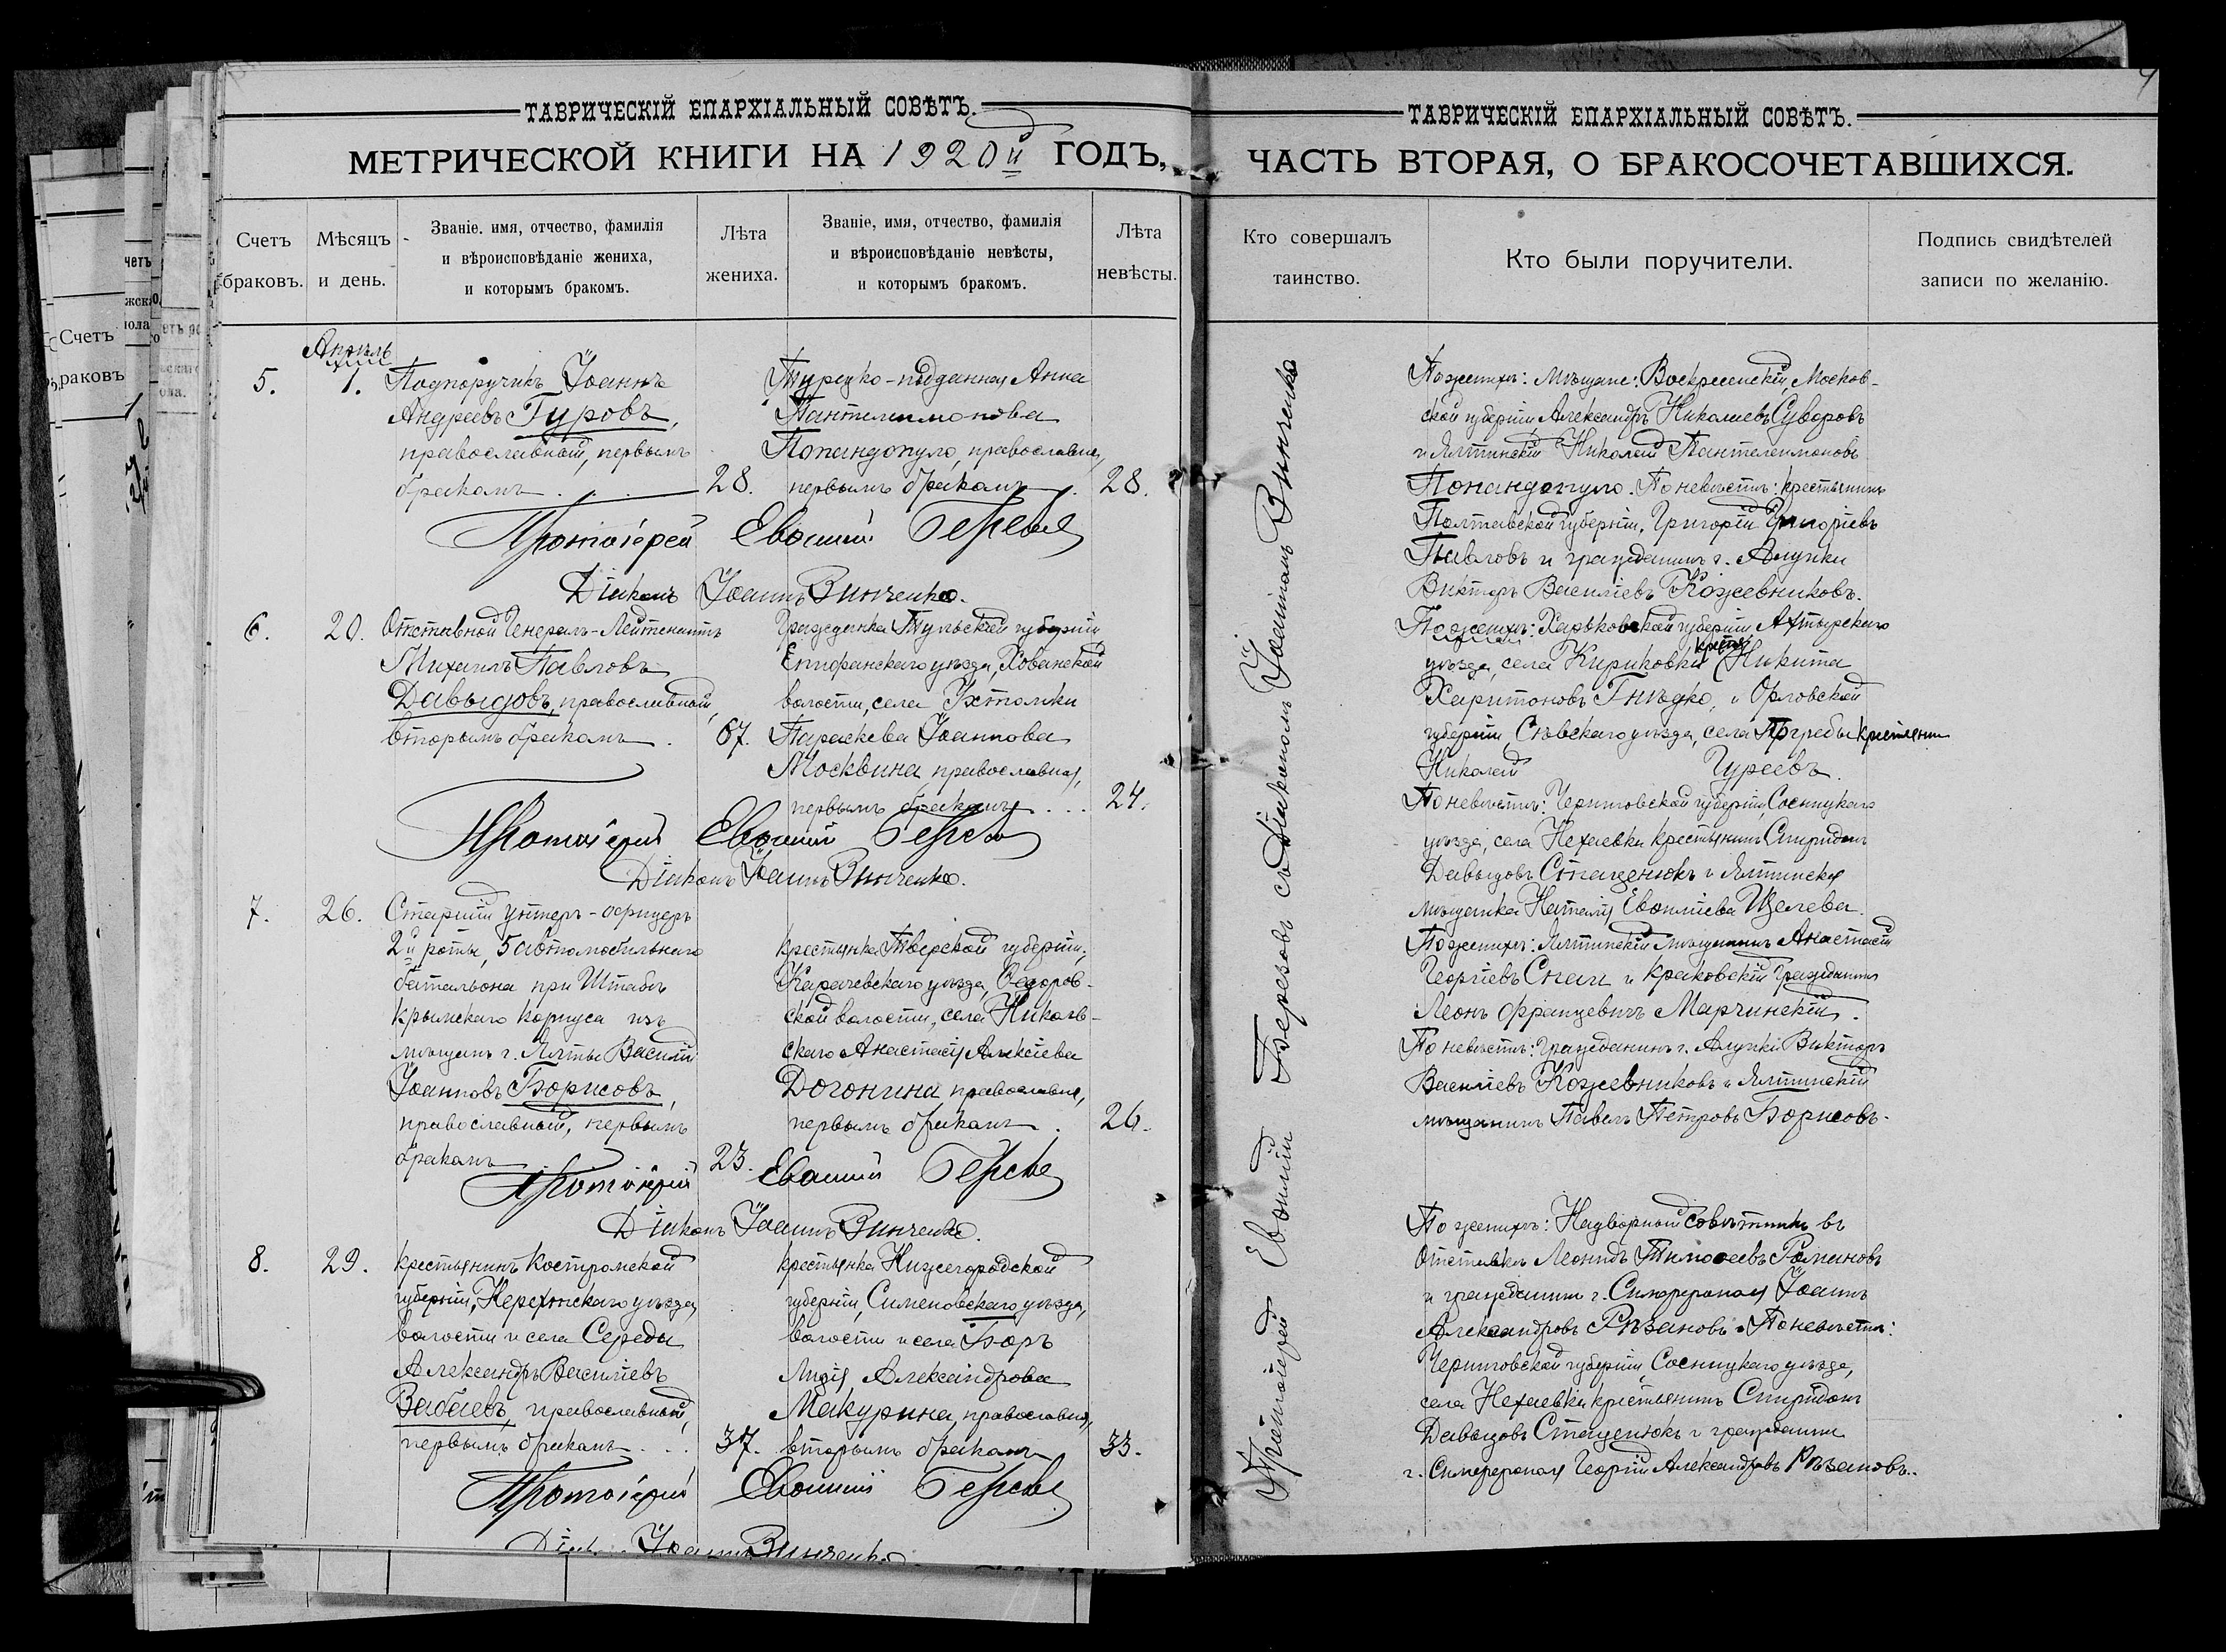 ТАВРИЧЕСКІЙ ЕПАРХІАЛЬНЫЙ СОВѢТЪ.
МЕТРИЧЕСКОЙ КНИГИ НА 1920й ГОДЪ,
Счетъ браковъ.
Мѣсяцъ и день.
Званіе. имя, отчество, фамилія
и вѣроисповѣданіе жениха,
и которымъ бракомъ.
Лѣта жениха.
Званіе, имя, отчество, фамилія
и вѣроисповѣданіе невѣсты,
и которымъ бракомъ.
Лѣта невѣсты.
Апрѣль
5.
1.
Подпоручикъ Іоаннъ
Андреевъ Гуровъ,
православный, первымъ
бракомъ
28.
Турецко-подданная Анна
Пантелимонова
Попандопуло, православная,
первымъ бракомъ
28.
Протоіерей Евѳимій
Діаконъ Іоаннъ Винченко.
6.
20.
Отставной Генералъ-Лейтенантъ
Михаилъ Павловъ
Давыдовъ, православный,
вторымъ бракомъ
67.
Гражданка Тульской губерніи
Епифанскаго уѣзда, Хованской
волости, села
Параскева Іоаннова
Москвина православная,
первымъ бракомъ
24.
Протоіерей Евѳимій
Діаконъ Іоаннъ Винченко.
7.
26.
Старшій унтеръ-офицеръ
2й роты, 5 автомобильнаго
баталіона при Штабѣ
Крымскаго Корпуса изъ
мѣщанъ г. Ялты Василій
Іоанновъ Борисовъ,
православный, первымъ
бракомъ
23.
крестьянка Тверской губерніи,
Карачевскаго уѣзда, Ѳедоров-
ской волости, села Николь-
скаго Анастасія Алексіева
Догонина, православная,
первымъ бракомъ
26.
Протоіерей Евѳимій
Діаконъ Іоаннъ Винченко.
8.
29.
крестьянинъ Костромской
губерніи, Нерехтскаго уѣзда,
волости и села Середы
Александръ Василіевъ
Забаевъ, православный,
первымъ бракомъ
37.
крестьянка Нижегородской
губерніи, Семеновскаго уѣзда,
волости и села Боръ
Лидія Александрова
Макурина, православная,
вторымъ бракомъ
33.
Протоіерей Евѳимій
Діаконъ Іоаннъ Винченко.
ТАВРИЧЕСКІЙ ЕПАРХІАЛЬНЫЙ СОВѢТЪ.
ЧАСТЬ ВТОРАЯ, О БРАКОСОЧЕТАВШИХСЯ.
Кто совершалъ таинство.
Кто были поручители.
Подпись свидѣтелей
записи по желанію.
Протоіерей Евѳимій съ Діакономъ Іоанномъ Винченко
По женихѣ: мѣщане: Воскресенскій, Москов-
ской губерніи, Александръ Николаевъ Суворовъ
и Ялтинскій Николай Пантелеимоновъ
Попандопуло. По невѣстѣ: крестьянинъ
Полтавской губерніи, Григорій Григоріевъ
Павловъ и гражданинъ г. Алупки
Викторъ Василіевъ Кожевниковъ.
По женихѣ: Харьковской губерніи Ахтырскаго
уѣзда, села Кириковки крест. Никита
Харитоновъ Гнѣдко, и Орловской
губерніи, Сѣвскаго уѣзда, села Погребы крестьянинъ
Николай Гуреевъ.
По невѣстѣ: Черниговской губерніи, Сосницкаго
уѣзда, села Нехаевки крестьянинъ Спиридонъ
Давыдовъ Стаценюкъ и Ялтинская
мѣщанка Наталія Евѳиміева Щелева.
По женихѣ: Ялтинскій мѣщанинъ Анастасій
Георгіевъ Спаи и Краковскій гражданинъ
Леонъ Францевичъ Марчинскій.
По невѣстѣ: Гражданинъ г. Алупки Викторъ
Василіевъ Кожевниковъ и Ялтинскій
мѣщанинъ Павелъ Петровъ Борисовъ.
По женихѣ: Надворный совѣтникъ въ
отставкѣ Леонидъ Тимоѳеевъ Романовъ
и гражданинъ г. Симферополя Іоаннъ
Александровъ Рѣзановъ. По невѣстѣ:
Черниговской губерніи, Сосницкаго уѣзда,
села Нехаевки крестьянинъ Спиридонъ
Давыдовъ Стаценюкъ и гражданинъ
г. Симферополя Георгій Александровъ Рѣзановъ.